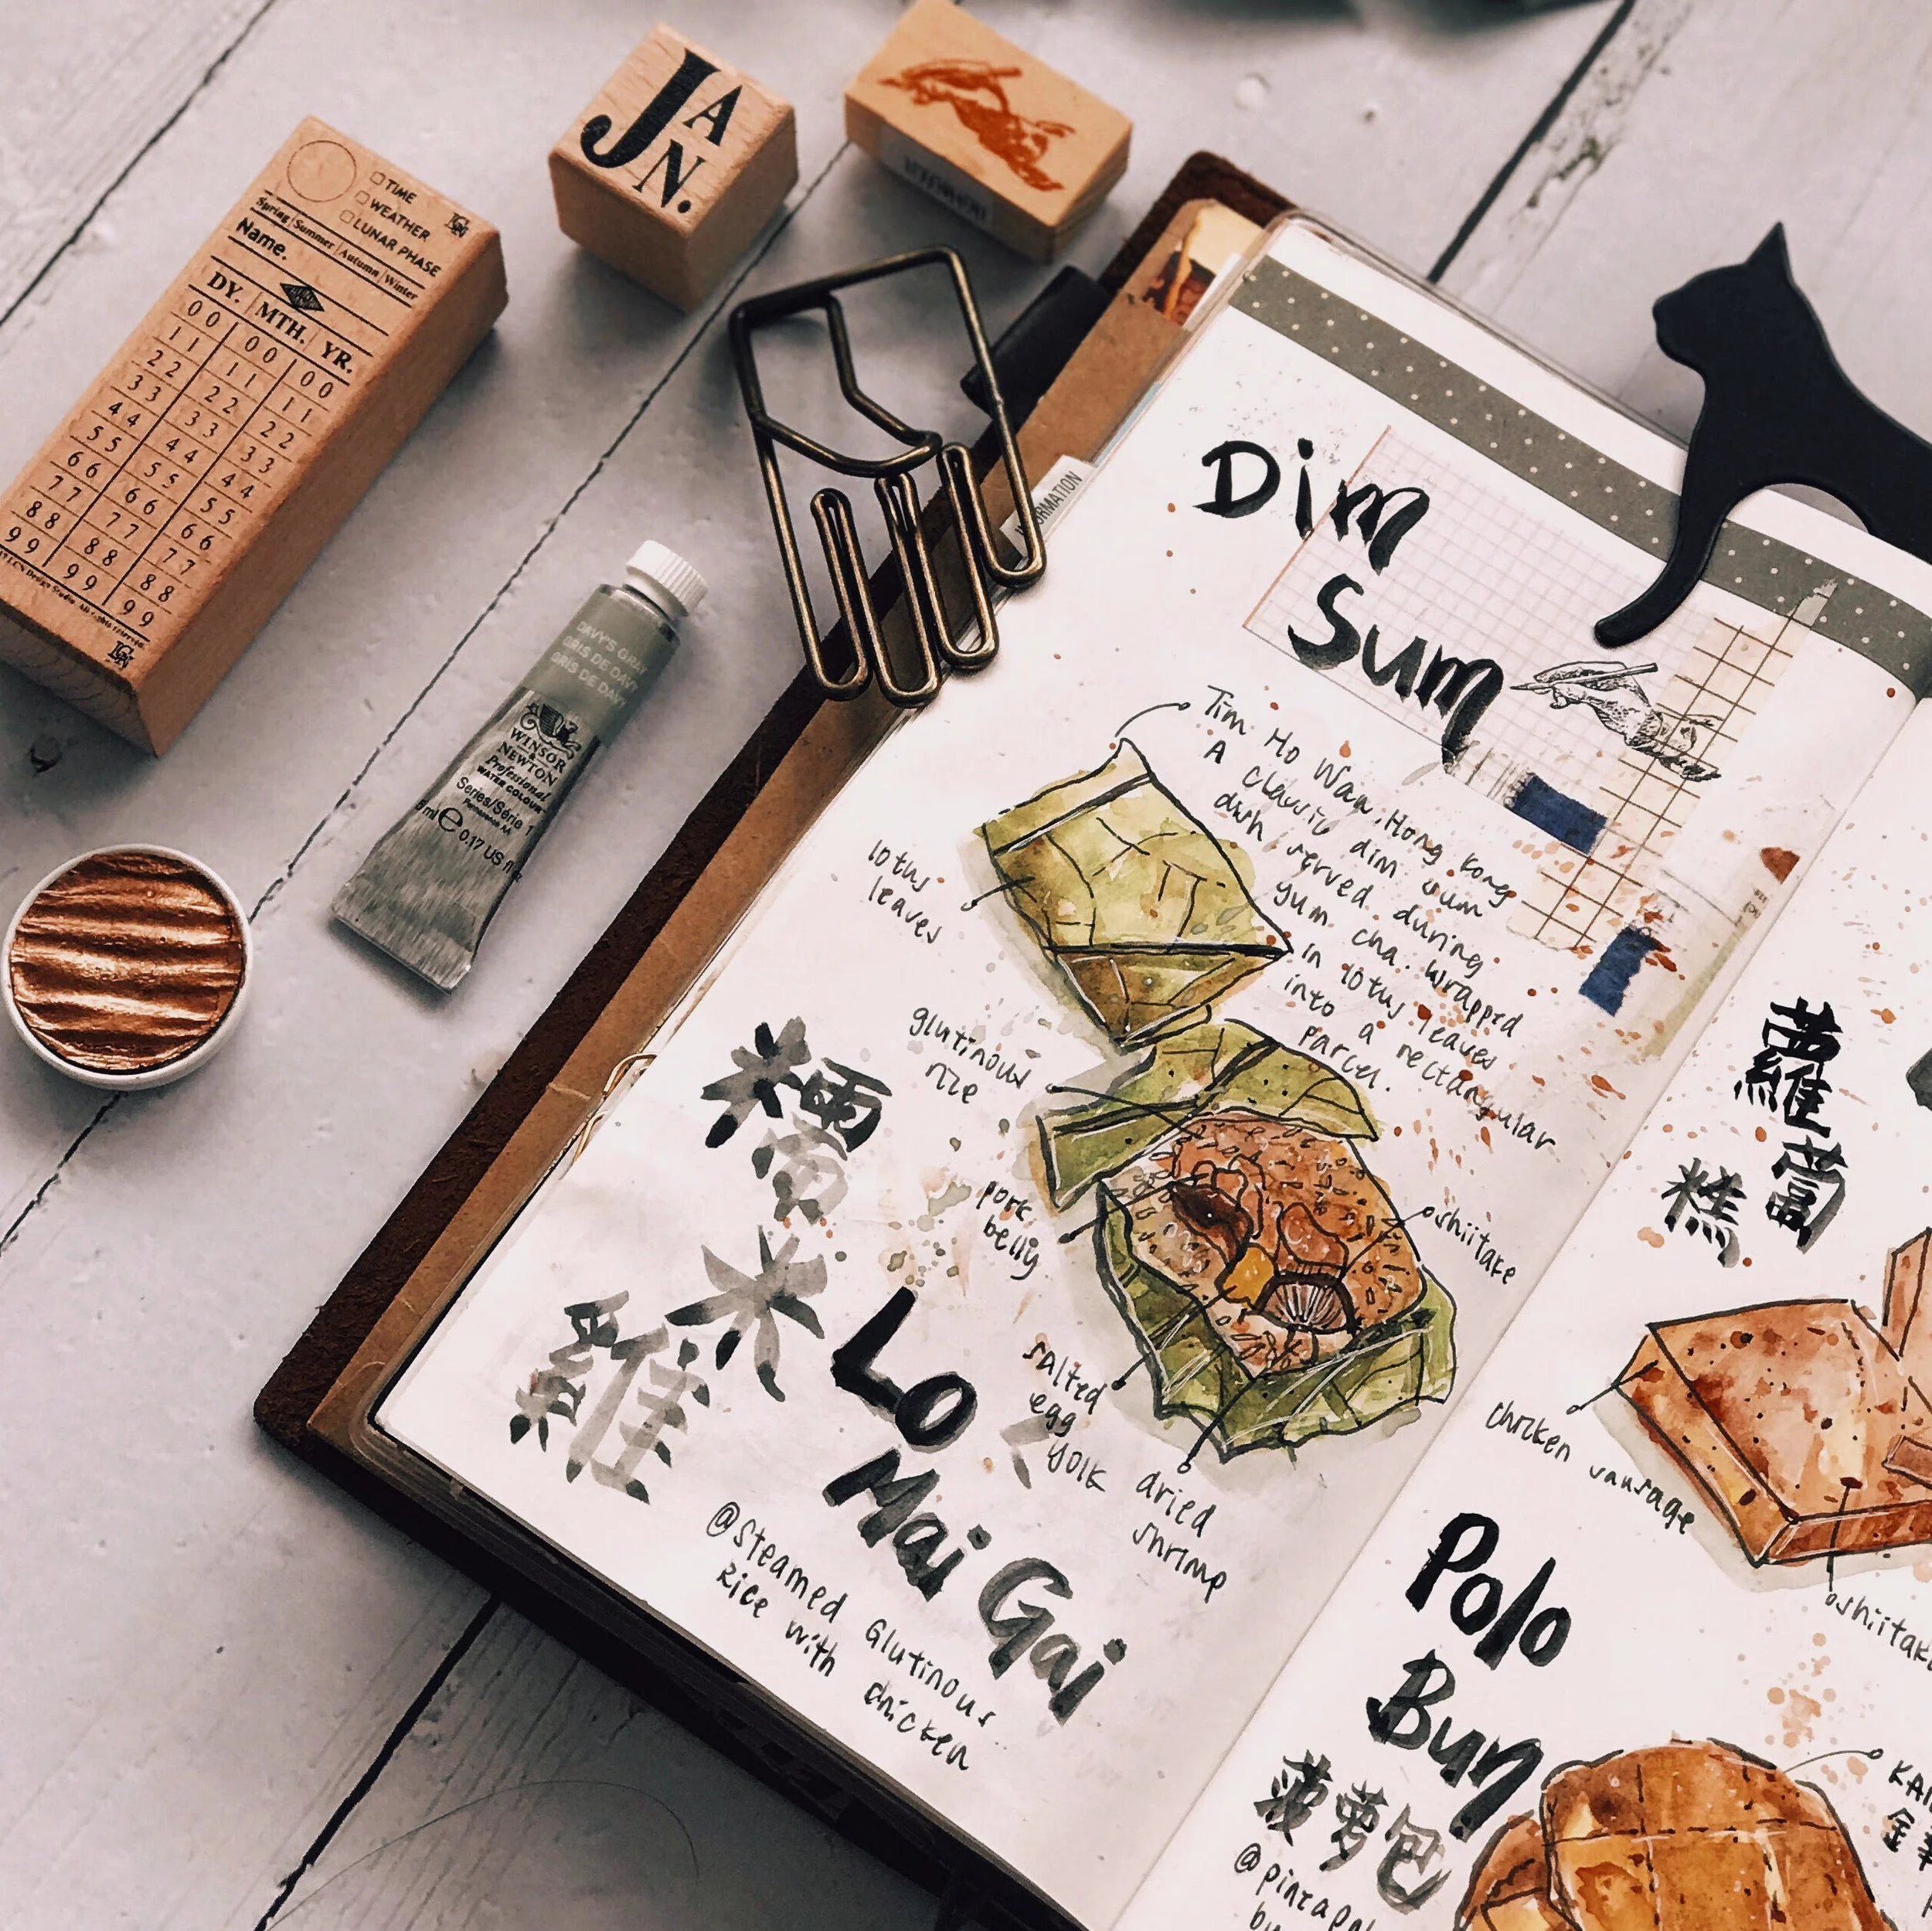 TIME
WEATHER
LUNAR PHASE
Spring/Summer/Autumn/Winter
Name.
DY. MTH. YR.
00 00 00
11 11 11
22 22 22
33 33 33
44 44 44
55 55 55
66 66 66
77 77 77
88 88 88
99 99 99
JAN.
DAVY'S GRAY
GRIS DE DAVY
GRIS DE DAVY
WINSOR
& NEWTON
Professional
WATER COLOUR
Series/Série 1
5 ml e 0.17 US fl oz
INFORMATION
Dim
Sum
Tim Ho Wan, Hong Kong
A Classic dim sum
dish served during
yum cha. Wrapped
in lotus leaves
into a rectangular
parcel.
lotus
leaves
glutinous
rice
pork
belly
shiitake
salted
egg
yolk
dried
shrimp
糯
米
雞
Lo
Mai Gai
@Steamed Glutinous
Rice with chicken
蘿蔔
糕
chicken sausage
shiitake
Polo
Bun
菠萝包
@pineapple